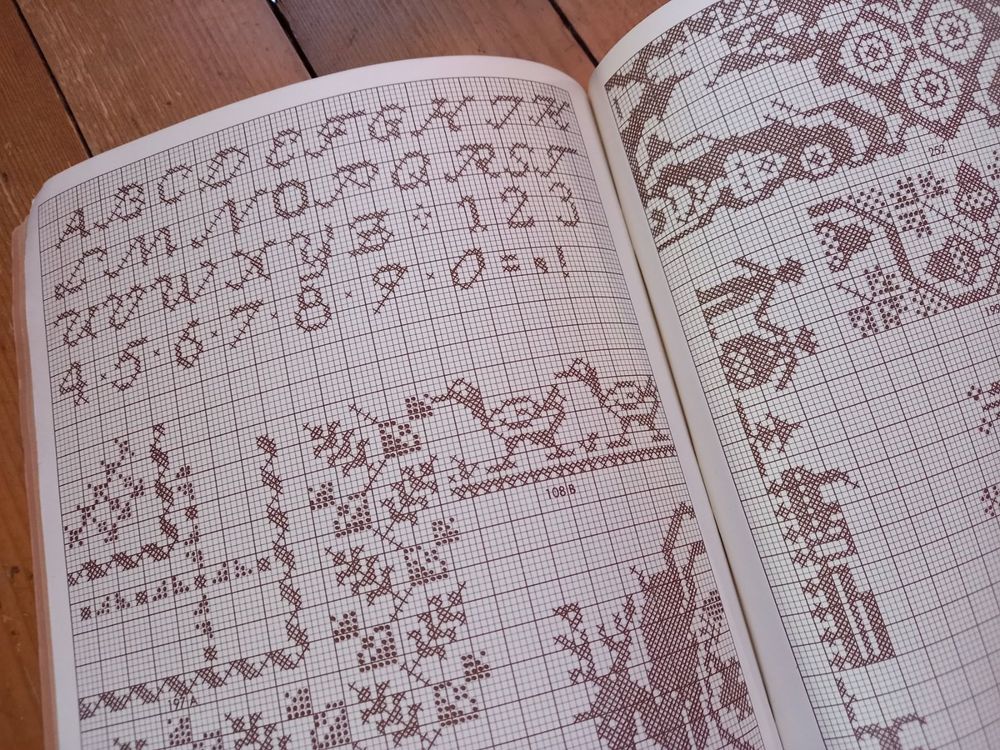 A B C D E F G H J K
L M N O P Q R S T
U V W X Y Z : 1 2 3
4 · 5 · 6 · 7 · 8 · 9 · 0 = !
108B
197A
252